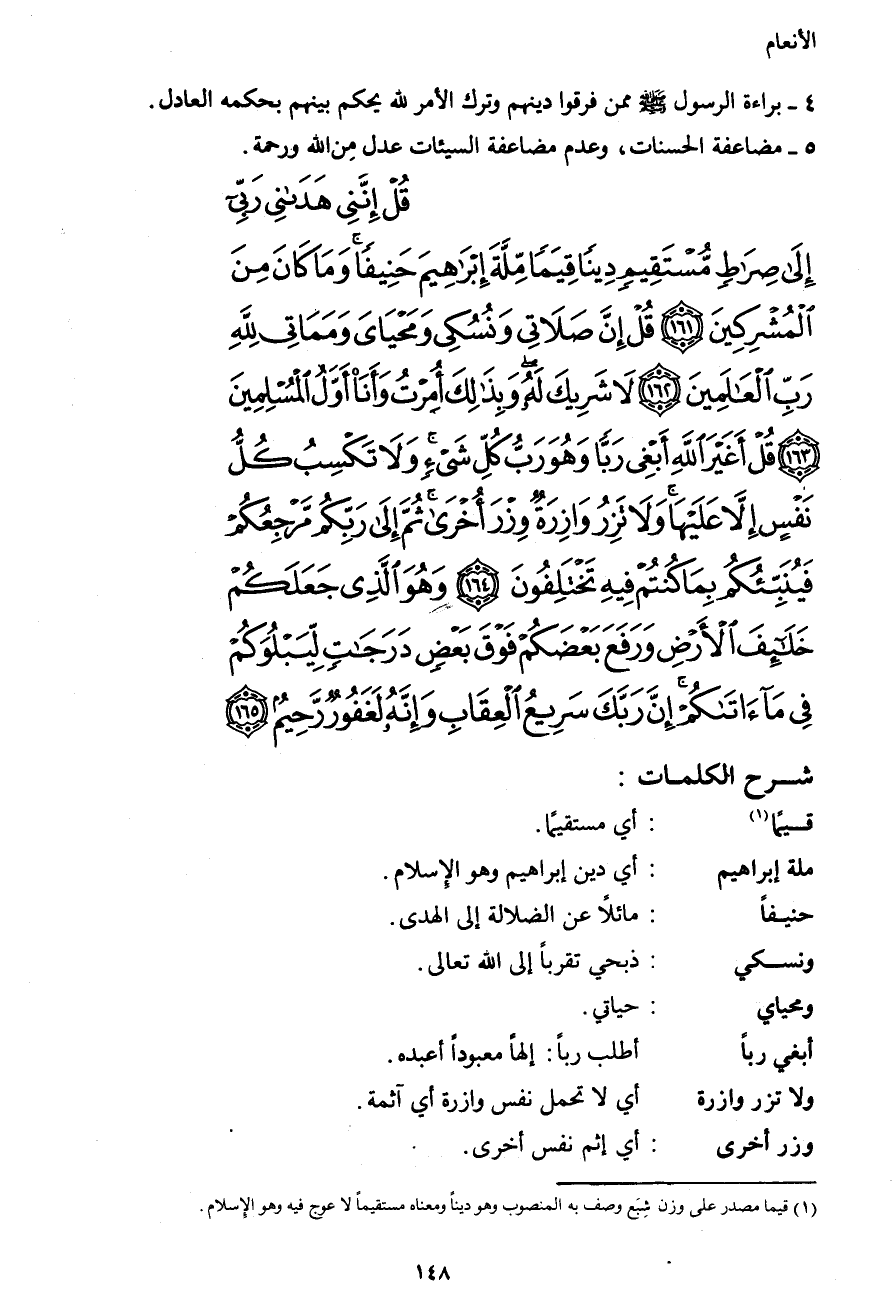 الأنعام
٤ ـ براءة الرسول ﷺ ممن فرقوا دينهم وترك الأمر لله يحكم بينهم بحكمه العادل.
٥ ـ مضاعفة الحسنات، وعدم مضاعفة السيئات عدل من الله ورحمة.
قُلْ إِنَّنِي هَدَىٰنِي رَبِّيٓ
إِلَىٰ صِرَٰطٍ مُّسْتَقِيمٍ دِينًا قِيَمًا مِّلَّةَ إِبْرَٰهِيمَ حَنِيفًا ۚ وَمَا كَانَ مِنَ
ٱلْمُشْرِكِينَ ﴿١٦١﴾ قُلْ إِنَّ صَلَاتِي وَنُسُكِي وَمَحْيَايَ وَمَمَاتِي لِلَّهِ
رَبِّ ٱلْعَٰلَمِينَ ﴿١٦٢﴾ لَا شَرِيكَ لَهُۥ ۖ وَبِذَٰلِكَ أُمِرْتُ وَأَنَا۠ أَوَّلُ ٱلْمُسْلِمِينَ
﴿١٦٣﴾ قُلْ أَغَيْرَ ٱللَّهِ أَبْغِي رَبًّا وَهُوَ رَبُّ كُلِّ شَيْءٍ ۚ وَلَا تَكْسِبُ كُلُّ
نَفْسٍ إِلَّا عَلَيْهَا ۚ وَلَا تَزِرُ وَازِرَةٌ وِزْرَ أُخْرَىٰ ۚ ثُمَّ إِلَىٰ رَبِّكُم مَّرْجِعُكُمْ
فَيُنَبِّئُكُم بِمَا كُنتُمْ فِيهِ تَخْتَلِفُونَ ﴿١٦٤﴾ وَهُوَ ٱلَّذِي جَعَلَكُمْ
خَلَٰٓئِفَ ٱلْأَرْضِ وَرَفَعَ بَعْضَكُمْ فَوْقَ بَعْضٍ دَرَجَٰتٍ لِّيَبْلُوَكُمْ
فِي مَآ ءَاتَىٰكُمْ ۗ إِنَّ رَبَّكَ سَرِيعُ ٱلْعِقَابِ وَإِنَّهُۥ لَغَفُورٌ رَّحِيمٌ ﴿١٦٥﴾
شـرح الكلمـات :
قـيمًا(١) : أي مستقيمًا.
ملة إبراهيم : أي دين إبراهيم وهو الإسلام.
حنيـفاً : مائلاً عن الضلالة إلى الهدى.
ونسـكي : ذبحي تقرباً إلى الله تعالى.
ومحياي : حياتي.
أبغي رباً أطلب رباً: إلهاً معبوداً أعبده.
ولا تزر وازرة أي لا تحمل نفس وازرة أي آثمة.
وزر أخرى : أي إثم نفس أخرى.
(١) قيما مصدر على وزن شِبَع وصف به المنصوب وهو ديناً ومعناه مستقيماً لا عوج فيه وهو الإسلام.
١٤٨